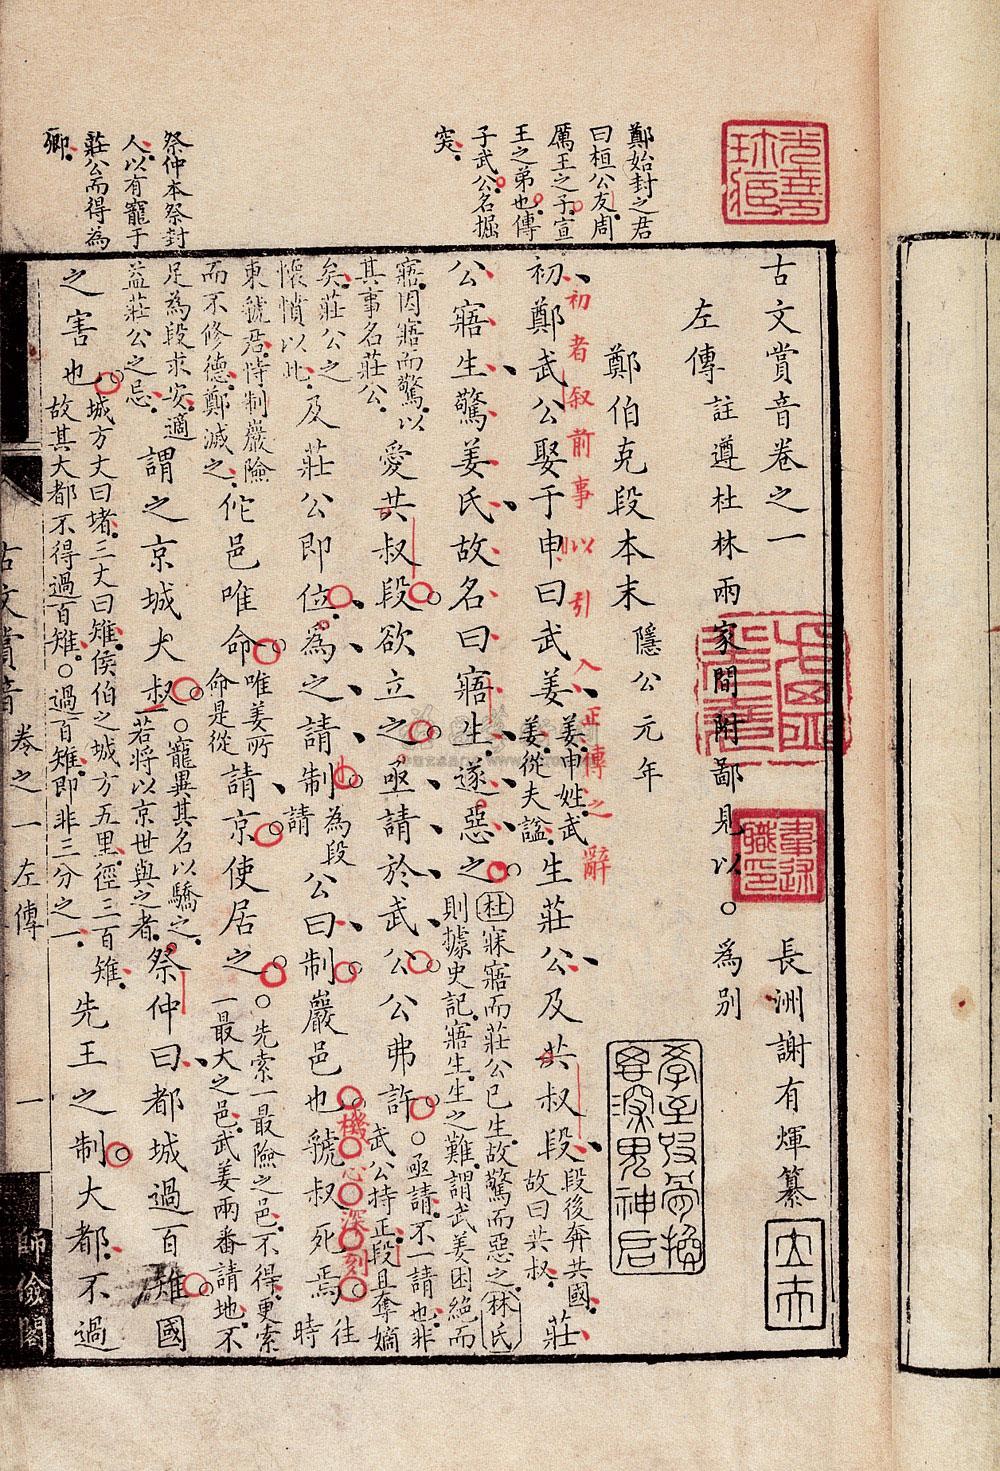 鄭始封之君
曰桓公友周
厲王之子宣
王之弟也傳
子武公名掘
突
祭仲本祭封
人以有寵于
莊公而得為
卿
古文賞音卷之一
長洲謝有煇纂
左傳
註遵杜林兩家間附鄙見以○為別
鄭伯克段本末
隱公元年
初鄭武公娶于申曰武姜
姜申姓武
姜從夫謚
生莊公及共叔段
段後奔共國
故曰共叔
莊
初者叙前事以引入正傳之辭
公寤生驚姜氏故名曰寤生遂惡之
杜寐寤而莊公已生故驚而惡之林氏
則據史記寤生生之難謂武姜困絕而
寤因寤而驚以
其事名莊公
愛共叔段欲立之亟請於武公公弗許
○亟請不一請也非
武公持正段且奪嫡
矣莊公之
懷憤以此
及莊公即位為之請制
為段
請
公曰制巖邑也虢叔死焉
往
時
機心深刻
東虢君恃制巖險
而不修德鄭滅之
佗邑唯命
唯姜所
命是從
請京使居之
○先索一最險之邑不得更索
一最大之邑武姜兩番請地不
足為段求安適
益莊公之忌
謂之京城大叔
○寵異其名以驕之
若將以京世與之者
祭仲曰都城過百雉國
之害也
城方丈曰堵三丈曰雉侯伯之城方五里徑三百雉
故其大都不得過百雉○過百雉即非三分之一
先王之制大都不過
古文賞音
卷之一
左傳
一
師儉閣